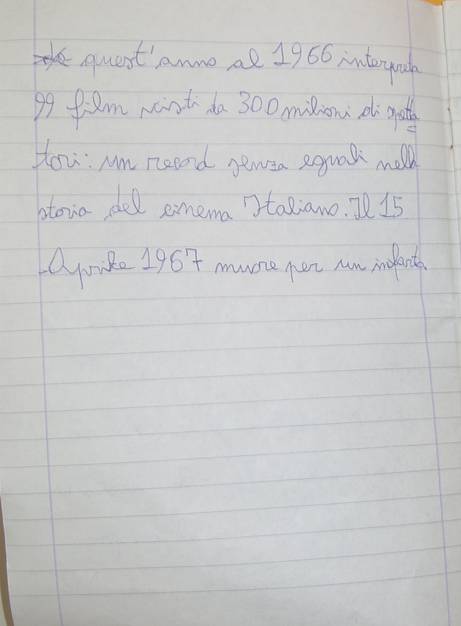 quest'anno al 1966 interpreta
99 film visti da 300 milioni di spetta
tori: un record senza eguali nella
storia del cinema Italiano. Il 15
Aprile 1967 muore per un infarto